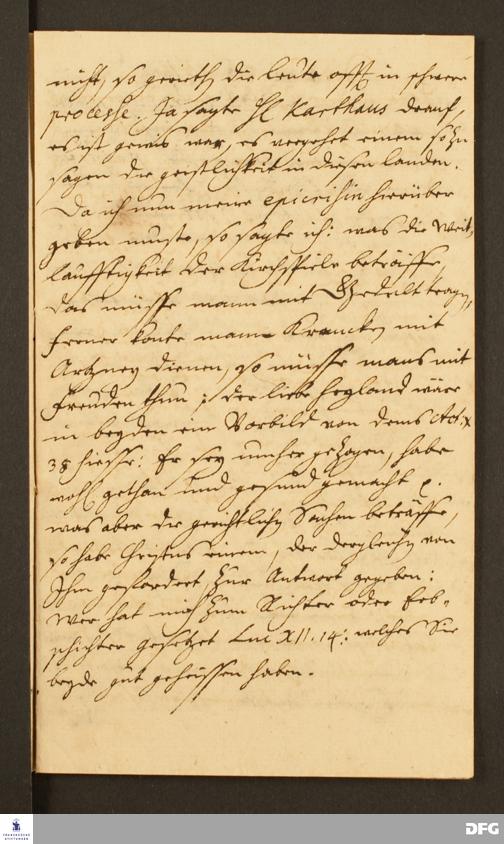 nicht, so gerieth die leute offt in schwere
processe. Ja sagte H Karthaus drauf,
es ist gewis war, es vergehet einem so zu
sagen die geistlichkeit in diesen landen.
Da ich nun meine epicrisin hierüber
geben muste, so sagte ich: was die Weit-
läufftigkeit der Kirchspiele beträffe
das müsse mann mit Gedult tragen,
ferner könte mann Krancken mit
Artzney dienen, so müsse mans mit
freuden thun; der liebe Heyland wäre
in beyden ein Vorbild von dems Act. X
38 hiesse: Er sey umher gezogen, habe
wohl gethan und gesund gemacht p.
was aber die gerichtlichen Sachen beträffe,
so habe Christus einem, der dergleichen von
Ihm gefordert, zur Antwort gegeben:
Wer hat mich zum Richter oder Erb-
schichter gesetzet Luc XII. 14: welches Sie
beyde gut geheissen haben.
FRANCKESCHE
STIFTUNGEN
DFG